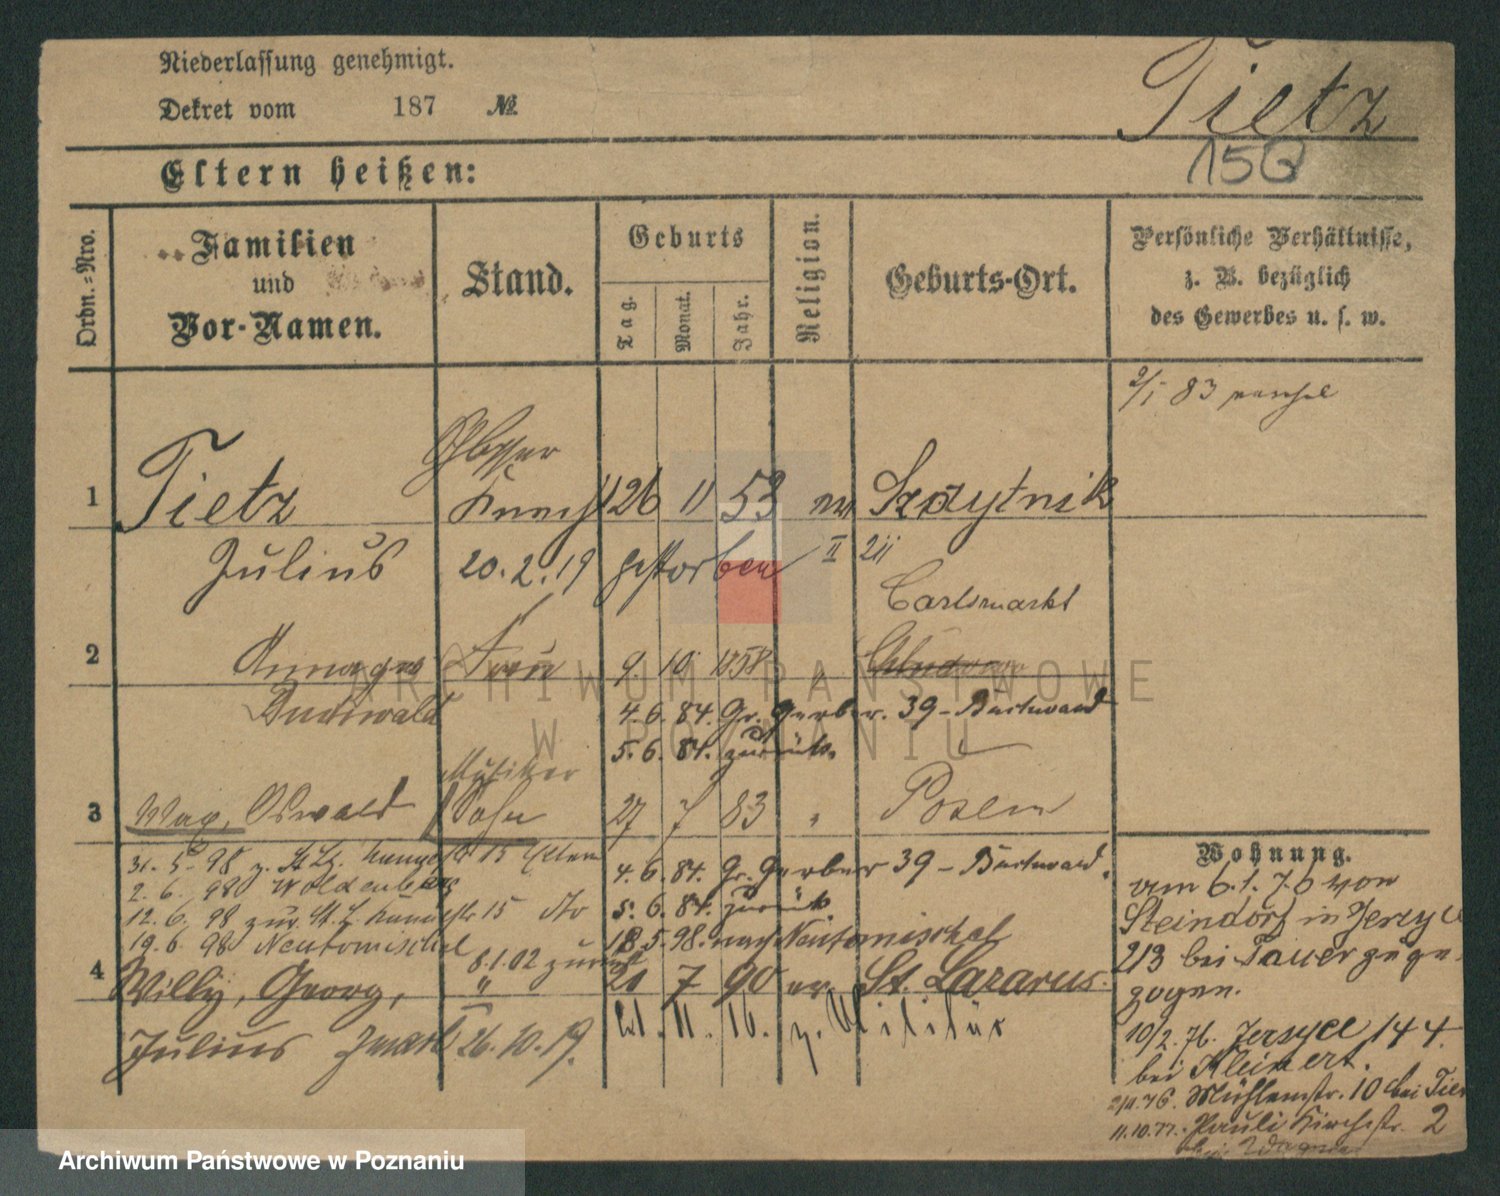 Niederlassung genehmigt.
Dekret vom 187 №
Tietz
150
Eltern heißen:
Ordn.-Nro.
Familien und Vor-Namen.
Stand.
Geburts
Tag. Monat. Jahr.
Religion.
Geburts-Ort.
Persönliche Verhältnisse,
z. B. bezüglich
des Gewerbes u. s. w.
2/1 83
1 Tietz 26 11 53 Szczytnik
Julius 20.2.19 gestorben II 211
Carlsmarkt
2 Anna geb Frau 9. 10 1858 "
Buchwald 4. 6. 84. Gr. Gerber. 39 - Buchwald
5. 6. 84. zurück.
Musiker
3 Max, Oswald Sohn 27 7 83 " Posen
31. 5. 98 St. Lz. 15 Eltern
4. 6. 84. Gr. Gerber 39 - Buchwald.
2. 6. 98 Woldenberg
5. 6. 84. zurück
12. 6. 98 zur. St. L. 15
18. 5. 98. nach Neutomischel
19. 6 98 Neutomischel
8.1.02 zurück
4 Willy, Georg, " 20 7 90 ev. St. Lazarus.
Julius 26.10.19. 21. 11. 16. z. Militär
Wohnung.
am 6.1.76 von
Steindorf in Jerzyce
213 bei Bauer zuge-
zogen.
10/2. 76. Jersyce 144.
bei Kleinert.
76. Mühlenstr. 10 bei
11.10.77. Pauli Kirchstr. 2
bei Wagner
ARCHIWUM PAŃSTWOWE
W POZNANIU
Archiwum Państwowe w Poznaniu